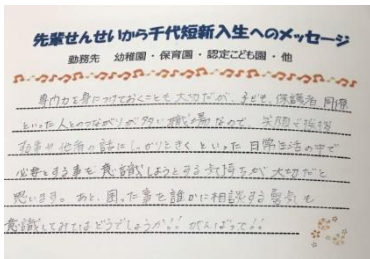 先輩せんせいから千代短新入生へのメッセージ
勤務先　幼稚園・保育園・認定こども園・他
力を身につけておくことも大切だが、子ども、保護者、同僚
といった人とのつながりが多い職場なので、笑顔で挨拶
や他者の話にしっかりときくといった日常生活の中で
必要とする事を意識しようとする気持ちが大切だと
思います。あと、困った事を誰かに相談する勇気も
意識してみてはどうでしょうか!! がんばって!!